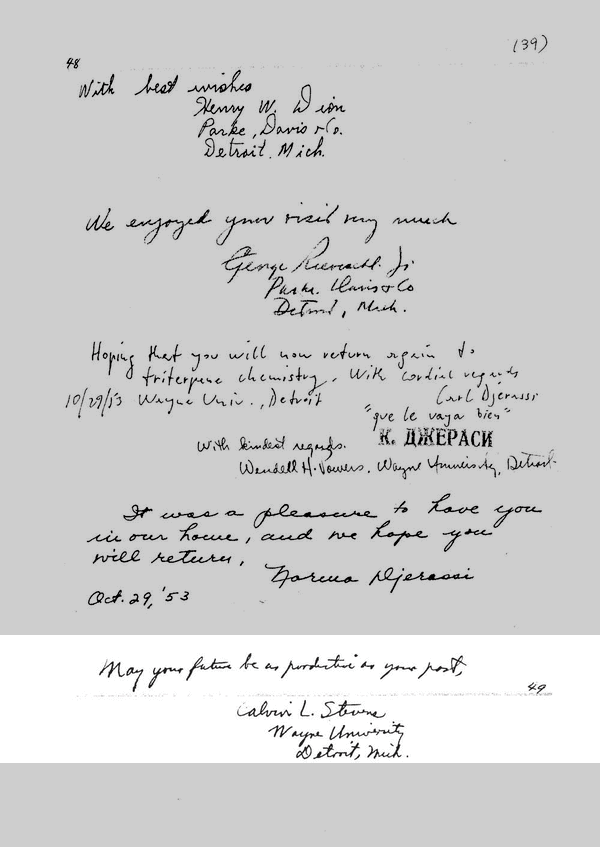 (39)
48
With best wishes
Henry W. Dion
Parke, Davis & Co.
Detroit, Mich.
We enjoyed your visit very much
George Rieveschl Jr
Parke. Davis & Co
Detroit, Mich.
Hoping that you will now return again to
triterpene chemistry. With cordial regards
10/29/53 Wayne Univ., Detroit Carl Djerassi
"que le vaya bien"
К. ДЖЕРАСИ
With kindest regards.
Wendell H. Powers. Wayne University, Detroit
It was a pleasure to have you
in our home, and we hope you
will return.
Norma Djerassi
Oct. 29, '53
May your future be as productive as your past,
49
Calvin L. Stevens
Wayne University
Detroit, Mich.